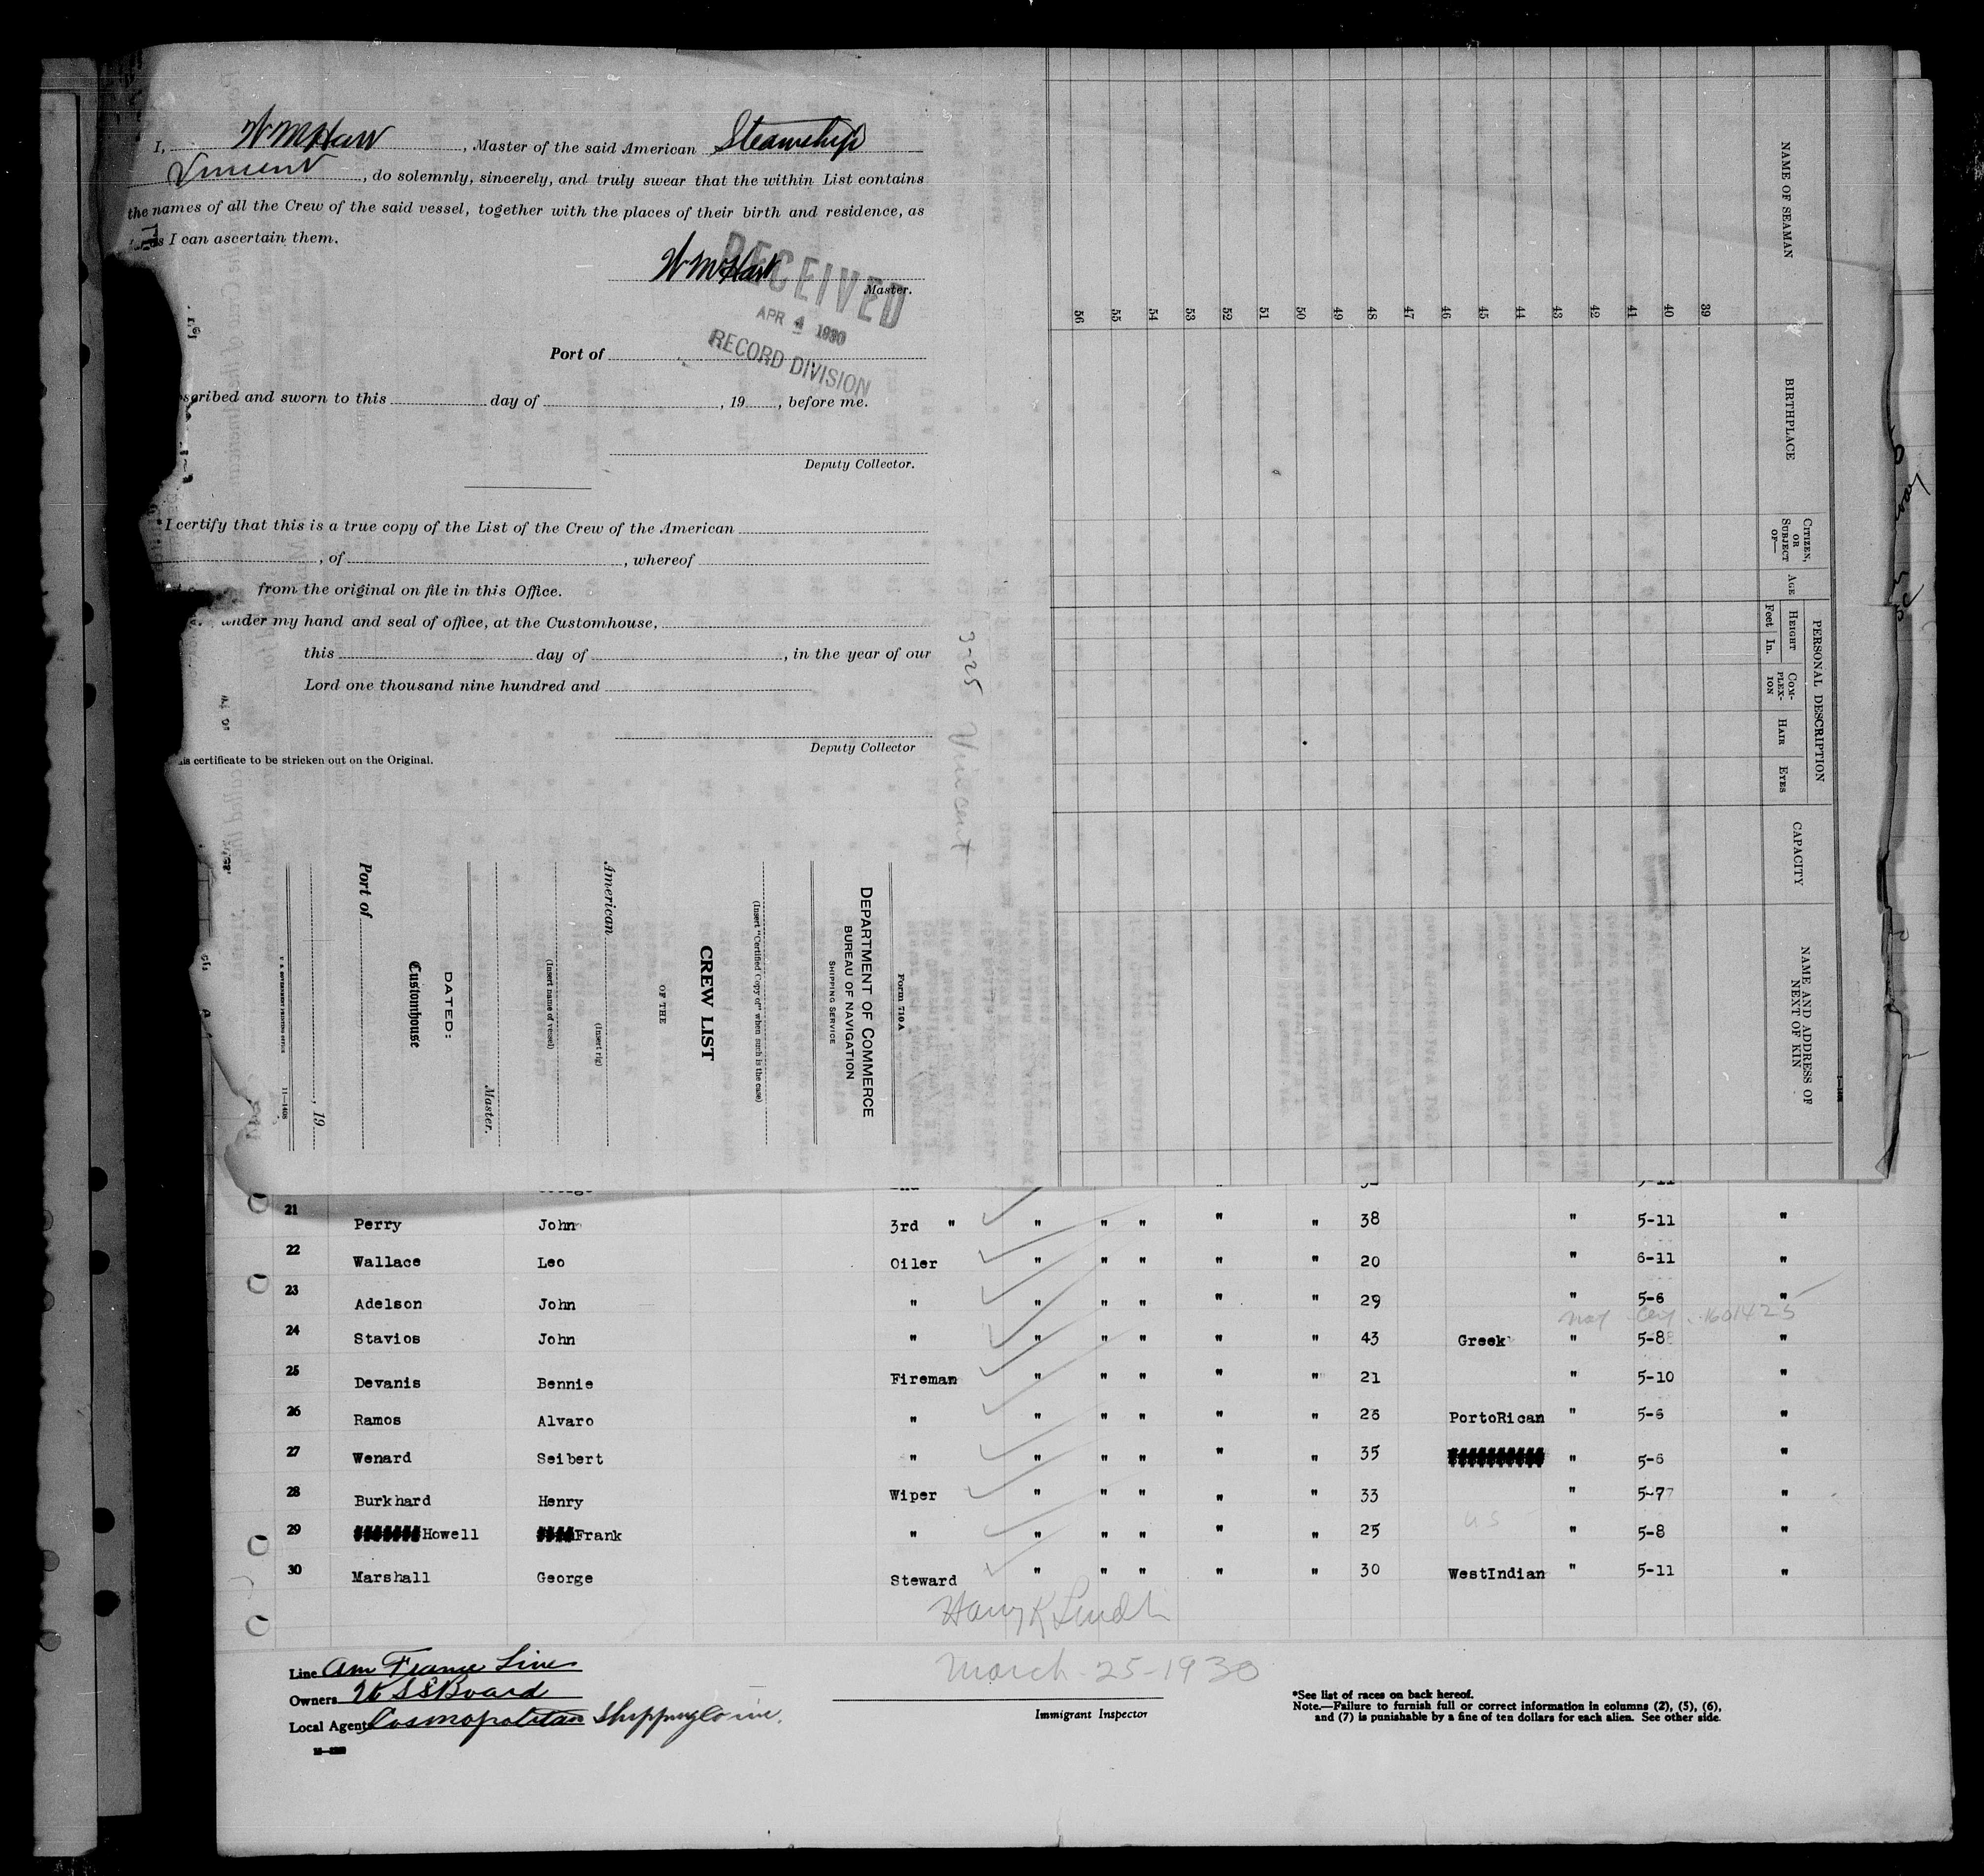 I, Wm Hart, Master of the said American Steamship
Vincent, do solemnly, sincerely, and truly swear that the within List contains
the names of all the Crew of the said vessel, together with the places of their birth and residence, as
I can ascertain them.
Wm Hart
Master.
RECEIVED
APR 4 1930
RECORD DIVISION
Port of
scribed and sworn to this day of , 19 , before me.
Deputy Collector.
I certify that this is a true copy of the List of the Crew of the American
, of , whereof
from the original on file in this Office.
under my hand and seal of office, at the Customhouse,
this day of , in the year of our
Lord one thousand nine hundred and
Deputy Collector
certificate to be stricken out on the Original.
3-25 Vincent
Form 710A
DEPARTMENT OF COMMERCE
BUREAU OF NAVIGATION
SHIPPING SERVICE
(Insert "Certified Copy of" when such is the case)
CREW LIST
OF THE
American
(Insert rig)
(Insert name of vessel)
Master.
DATED:
Customhouse
Port of
, 19
U. S. GOVERNMENT PRINTING OFFICE 11—1408
NAME OF SEAMAN
BIRTHPLACE
CITIZEN, OR SUBJECT OF—
AGE
PERSONAL DESCRIPTION
HEIGHT
Feet In.
COM-PLEX-ION
HAIR
EYES
CAPACITY
NAME AND ADDRESS OF NEXT OF KIN
39
40
41
42
43
44
45
46
47
48
49
50
51
52
53
54
55
56
21 Perry John 3rd " " " " " " 38 " 5-11 "
22 Wallace Leo Oiler " " " " " 20 " 6-11 "
23 Adelson John " " " " " " 29 " 5-6 "
1601425
24 Stavios John " " " " " " 43 Greek " 5-8 "
25 Devanis Bennie Fireman " " " " " 21 " 5-10 "
26 Ramos Alvaro " " " " " " 26 PortoRican " 5-6 "
27 Wenard Seibert " " " " " " 35 " 5-6 "
28 Burkhard Henry Wiper " " " " " 33 " 5-7 "
29 Howell Frank " " " " " " 25 US " 5-8 "
30 Marshall George Steward " " " " " 30 WestIndian " 5-11 "
Line Am France Line
Owners U S S Board
Local Agent Cosmopolitan Shipping Co inc.
March-25-1930
Immigrant Inspector
*See list of races on back hereof.
Note.—Failure to furnish full or correct information in columns (2), (5), (6),
and (7) is punishable by a fine of ten dollars for each alien. See other side.